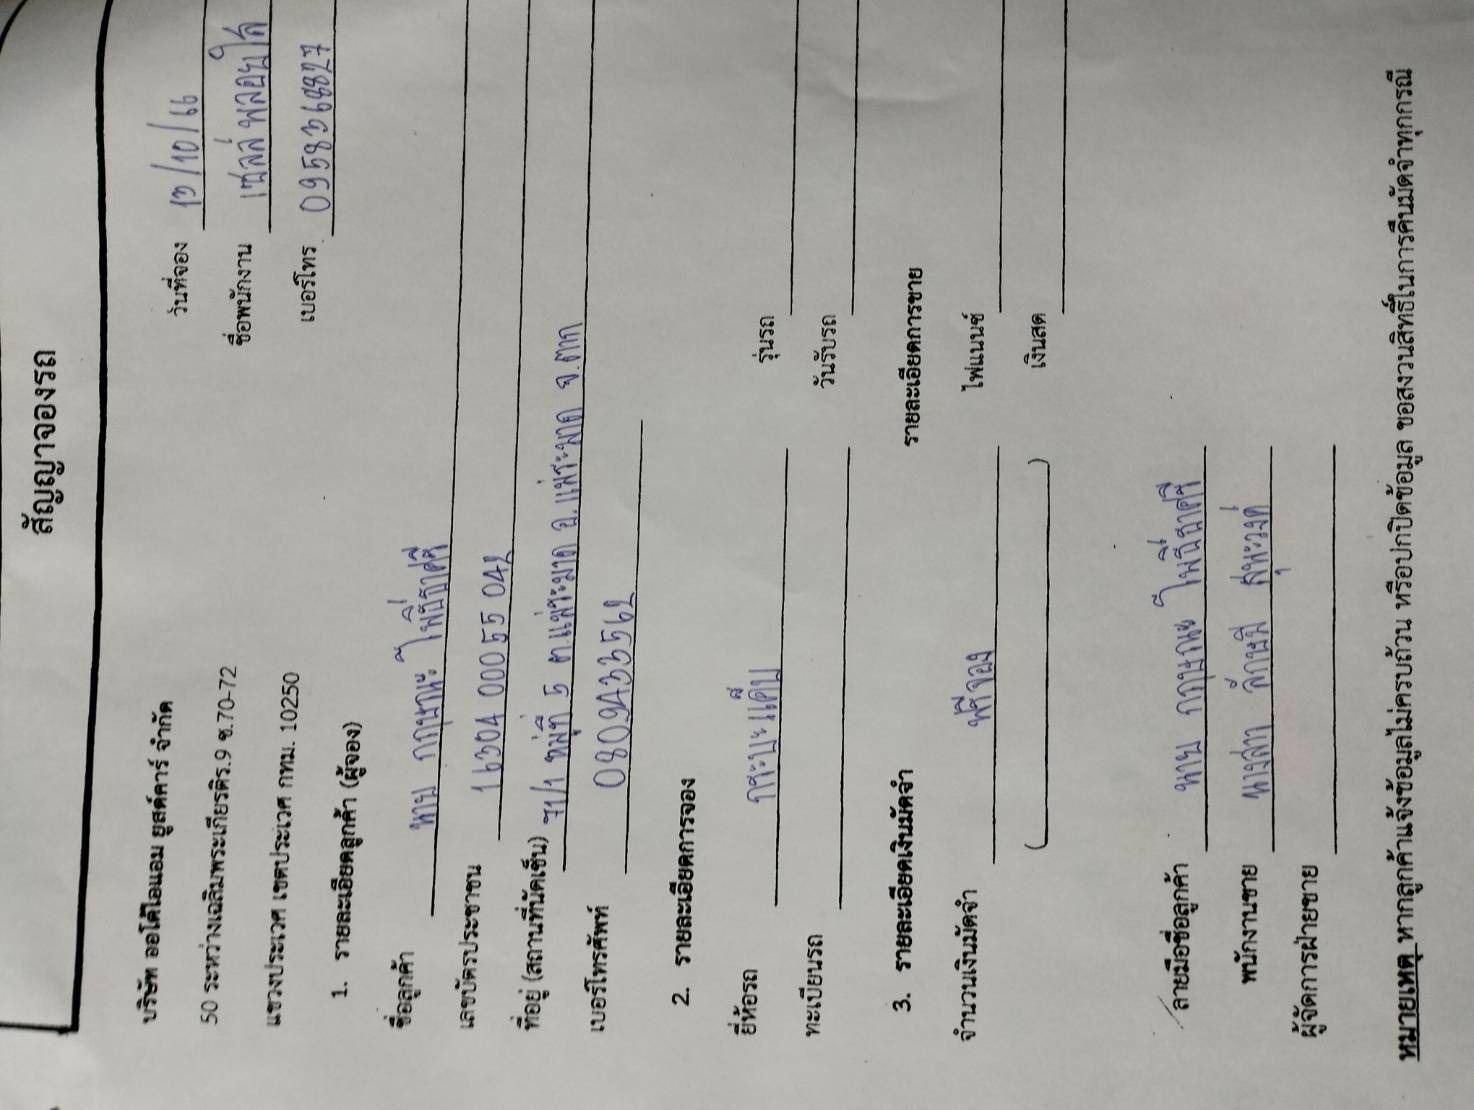 สัญญาจองรถ
วันที่จอง 13/10/66
บริษัท ออโต้ไอแอม ยูสด์คาร์ จำกัด
ชื่อพนักงาน เซลล์ พลอยใส
50 ระหว่างเฉลิมพระเกียรติร.9 ซ.70-72
เบอร์โทร. 0958368827
แขวงประเวศ เขตประเวศ กทม. 10250
1. รายละเอียดลูกค้า (ผู้จอง)
ชื่อลูกค้า นาย กฤษณะ โพธิ์ธาตุศรี
เลขบัตรประชาชน 16304 00055 042
ที่อยู่ (สถานที่นัดเซ็น) 71/1 หมู่ที่ 5 ต.แม่ระมาด อ.แม่ระมาด จ.ตาก
เบอร์โทรศัพท์ 0809433562
2. รายละเอียดการจอง
ยี่ห้อรถ กระบะแค็บ รุ่นรถ
ทะเบียนรถ วันรับรถ
3. รายละเอียดเงินมัดจำ รายละเอียดการขาย
จำนวนเงินมัดจำ ฟรีจอง ไฟแนนซ์
( ) เงินสด
ลายมือชื่อลูกค้า นาย กฤษณะ
พนักงานขาย นางสาว
ผู้จัดการฝ่ายขาย
หมายเหตุ หากลูกค้าแจ้งข้อมูลไม่ครบถ้วน หรือปกปิดข้อมูล ขอสงวนสิทธิ์ในการคืนมัดจำทุกกรณี